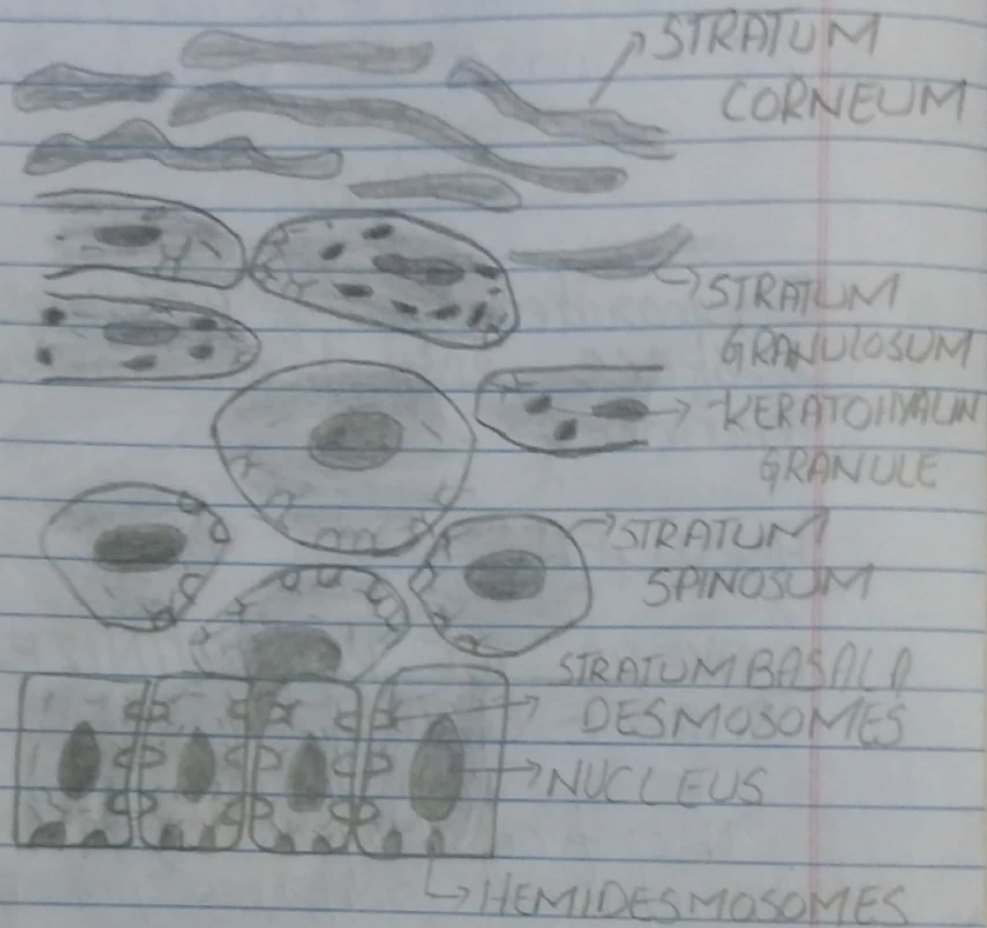 STRATUM
CORNEUM
STRATUM
GRANULOSUM
KERATOHYALIN
GRANULE
STRATUM
SPINOSUM
STRATUM BASALA
DESMOSOMES
NUCLEUS
HEMIDESMOSOMES